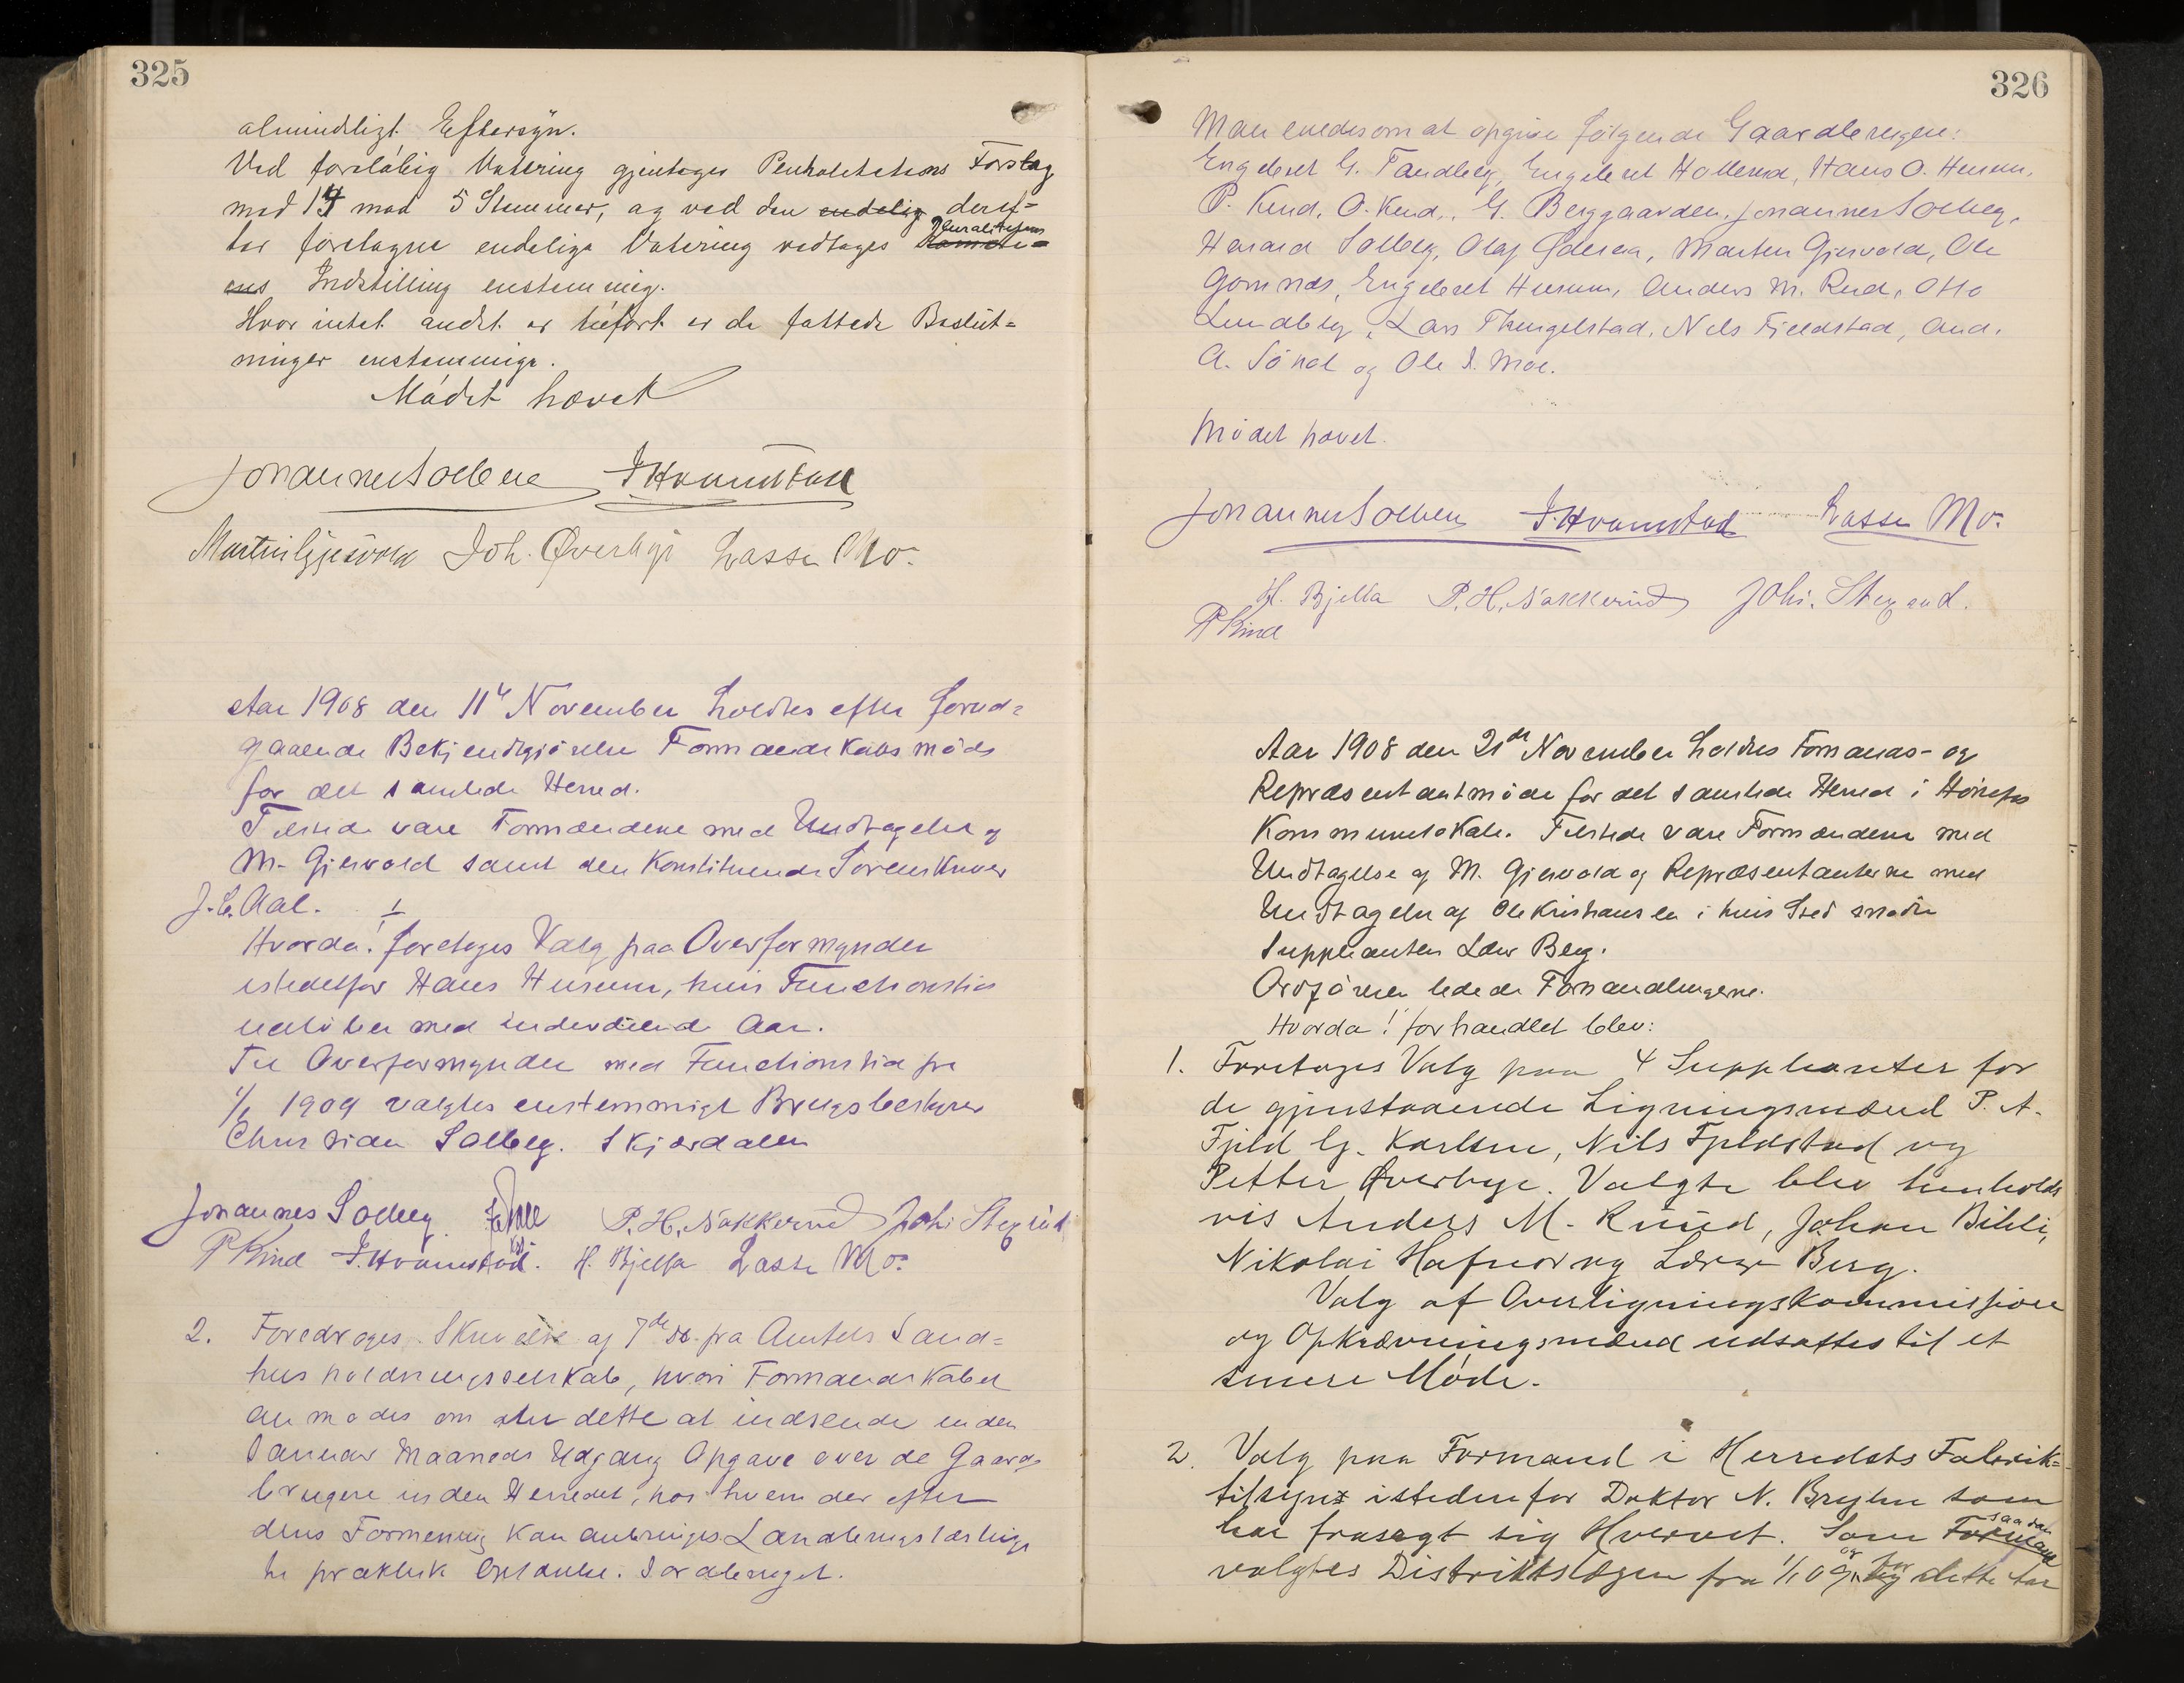 325
almindeligt Eftersyn.
Ved foreløbig Votering gjentages Penkolitetens Forslag
med 14 mod 5 Stemmer, og ved den endelig deref-
ter foretagne endelige Votering vedtages Pluralitetens
ens Indstilling enstemmig.
Hvor intet andet er tilført er de fattede Beslut-
ninger enstemmige.
Mødet hævet
Johannes Solberg J Hvamstad
Martin Gjesvold Joh. Øverbye Lasse Mo.
Aar 1908 den 11te November holdtes efter forud-
gaaende Bekjendtgjørelse Formandskabsmøde
for det samlede Herred.
Tilstede vare Formændene med Undtagelse af
M. Gjesvold samt den Konstituerede Sorenskriver
J. C. Aal. 1
Hvorda! foretoges Valg paa Overformynder
istedetfor Hans Hurum, hvis Functionstid
udløber med indeværende Aar.
Til Overformynder med Functionstid fra
1/1 1909 valgtes enstemmigt Brugsbestyrer
Christian Solberg. Skjærdalen
Johannes Solberg P. H. Nakkerud Joh. Stegrud
P Kind J. Hvamstad. H. Bjella Lasse Mo.
2. Foredroges Skrivelse af 7de ds. fra Amtets Land-
husholdningsselskab, hvori Formandskabet
anmodes om dette at indsende inden
Januar Maaneds Udgang Opgave over de Gaard-
brugere inden Herredet, hos hvem der efter
dens Formening kan anbringes Landbrugslærlinge
til praktisk Oplærelse. i Jordbruget.
326
Man enedes om at opgive følgende Gaardbrugere:
Engebret G. Tandberg, Engebret Hollerud, Hans O. Hurum,
P. Kind, O. Kind, G. Berggaarden, Johannes Solberg,
Harald Solberg, Olaf Øderaa, Martin Gjesvold, Ole
Gomnæs, Engebret Hurum, Anders M. Rud, Otto
Lundberg, Lars Thingelstad, Nils Fjeldstad, And.
A. Sønd og Ole I. Moe.
Mødet hævet.
Johannes Solberg J. Hvamstad Lasse Mo.
H. Bjella P. H. Nakkerud Joh. Stegrud.
P Kind
Aar 1908 den 21de November holdtes Formands- og
Repræsentantmøde for det samlede Herred i Hønefos
Kommunelokale. Tilstede vare Formændene med
Undtagelse af M. Gjesvold og Repræsentanterne med
Undtagelse af Ole Kristiansen i hvis Sted mødte
Suppleanten Lars Berg.
Ordføreren ledede Forhandlingerne.
Hvorda! forhandlet blev:
1. Foretages Valg paa 4 Suppleanter for
de gjenstaaende Ligningsmænd P. A.
Fjeld G. Karlsen, Nils Fjeldstad og
Petter Øverbye. Valgte blev henholds
vis Anders M. Ruud, Johan Bihli,
Nikolai Hafnor og Lars Berg.
Valg af Overligningskommission
og Opkrævningsmænd udsattes til et
senere Møde.
2. Valg paa Formand i Herredets Fabrik-
tilsyn istedenfor Doktor N. Bryhn som
har frasagt sig Hvervet. Som saadan Formand
valgtes Distriktslægen fra 1/1 09, og for dette Aar